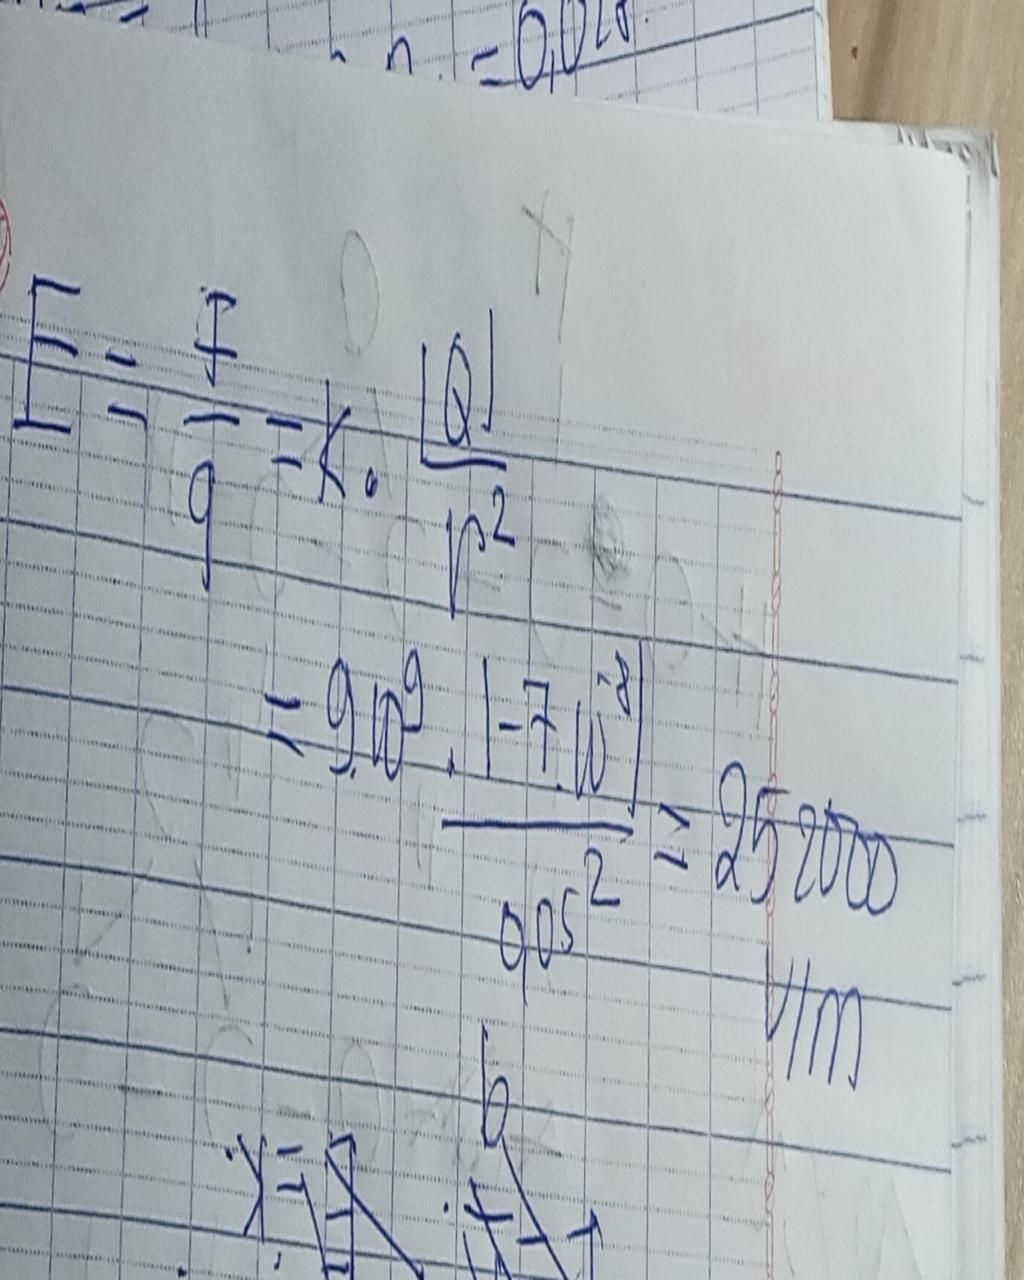 = 0,028
E = F/q = k. |Q|/r²
= 9.10⁹ . |-7.10⁻⁸|/0,05² = 252000
V/m